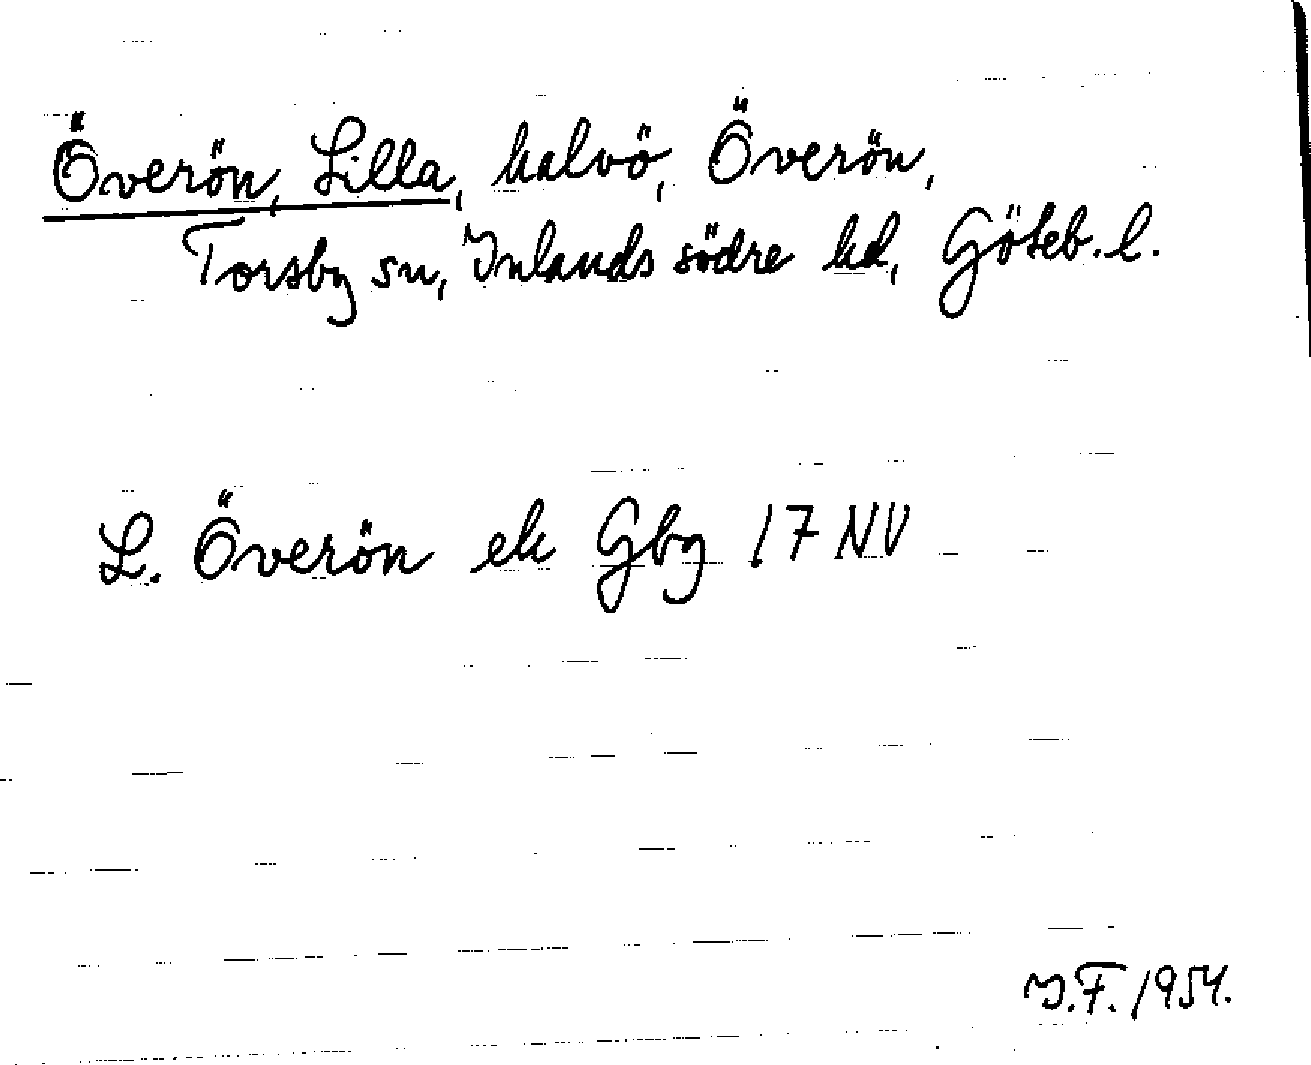 Överön, Lilla, halvö, Överön,
Torsby sn, Inlands södre hd, Göteb. l.
L. Överön ek Gbg 17 NV
I.F. 1954.